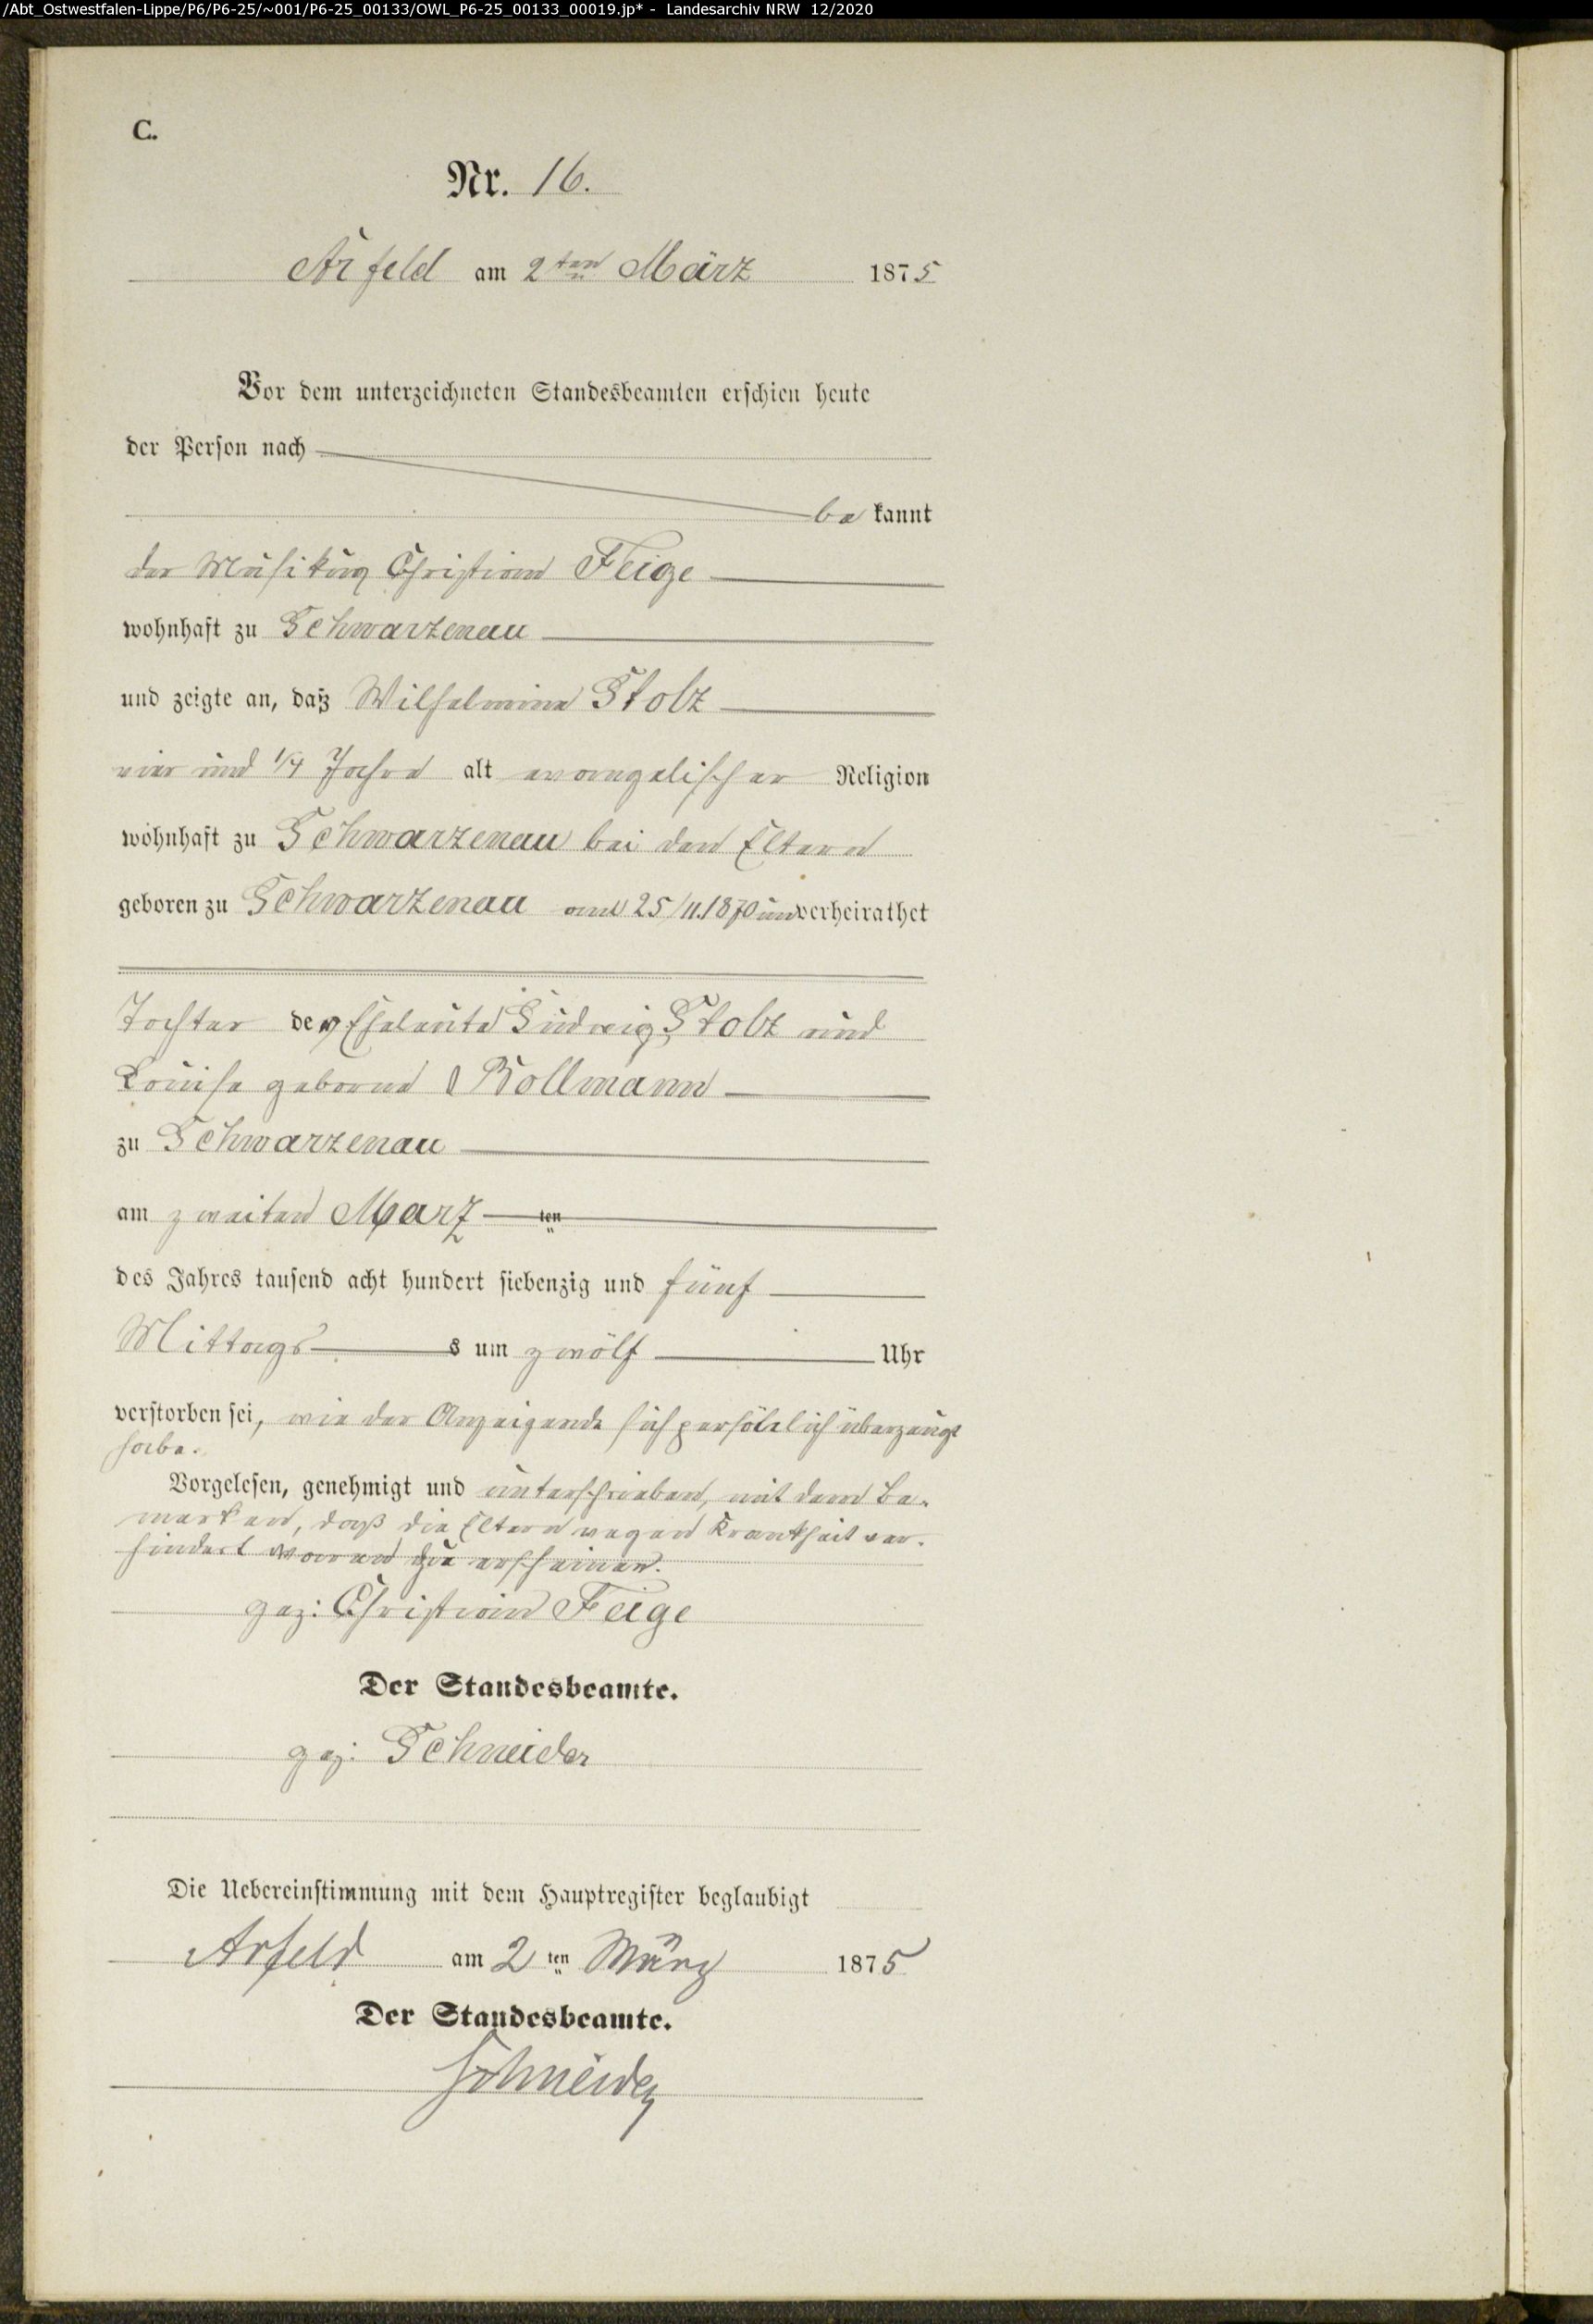 /Abt_Ostwestfalen-Lippe/P6/P6-25/~001/P6-25_00133/OWL_P6-25_00133_00019.jp* - Landesarchiv NRW 12/2020
C.
Nr. 16.
Arfeld am 2ten März 1875
Vor dem unterzeichneten Standesbeamten erschien heute
der Person nach
be kannt
der Musikus Christian Feige
wohnhaft zu Schwarzenau
und zeigte an, daß Wilhelmine Stolz
vier und 1/4 Jahre alt evangelischer Religion
wohnhaft zu Schwarzenau bei den Eltern
geboren zu Schwarzenau am 25/11.1870 unverheirathet
Tochter der Eheleute Ludwig Stolz und
Louise geborne Bollmann
zu Schwarzenau
am zweiten März ten
des Jahres tausend acht hundert siebenzig und fünf
Mittags s um zwölf Uhr
verstorben sei, wie der Anzeigende sich persönlich überzeugt
habe.
Vorgelesen, genehmigt und unterschrieben, mit dem Be-
merken, daß die Eltern wegen Krankheit ver-
hindert waren zu erscheinen.
gez: Christian Feige
Der Standesbeamte.
gez: Schneider
Die Uebereinstimmung mit dem Hauptregister beglaubigt
Arfeld am 2 ten März 1875
Der Standesbeamte.
Schneider